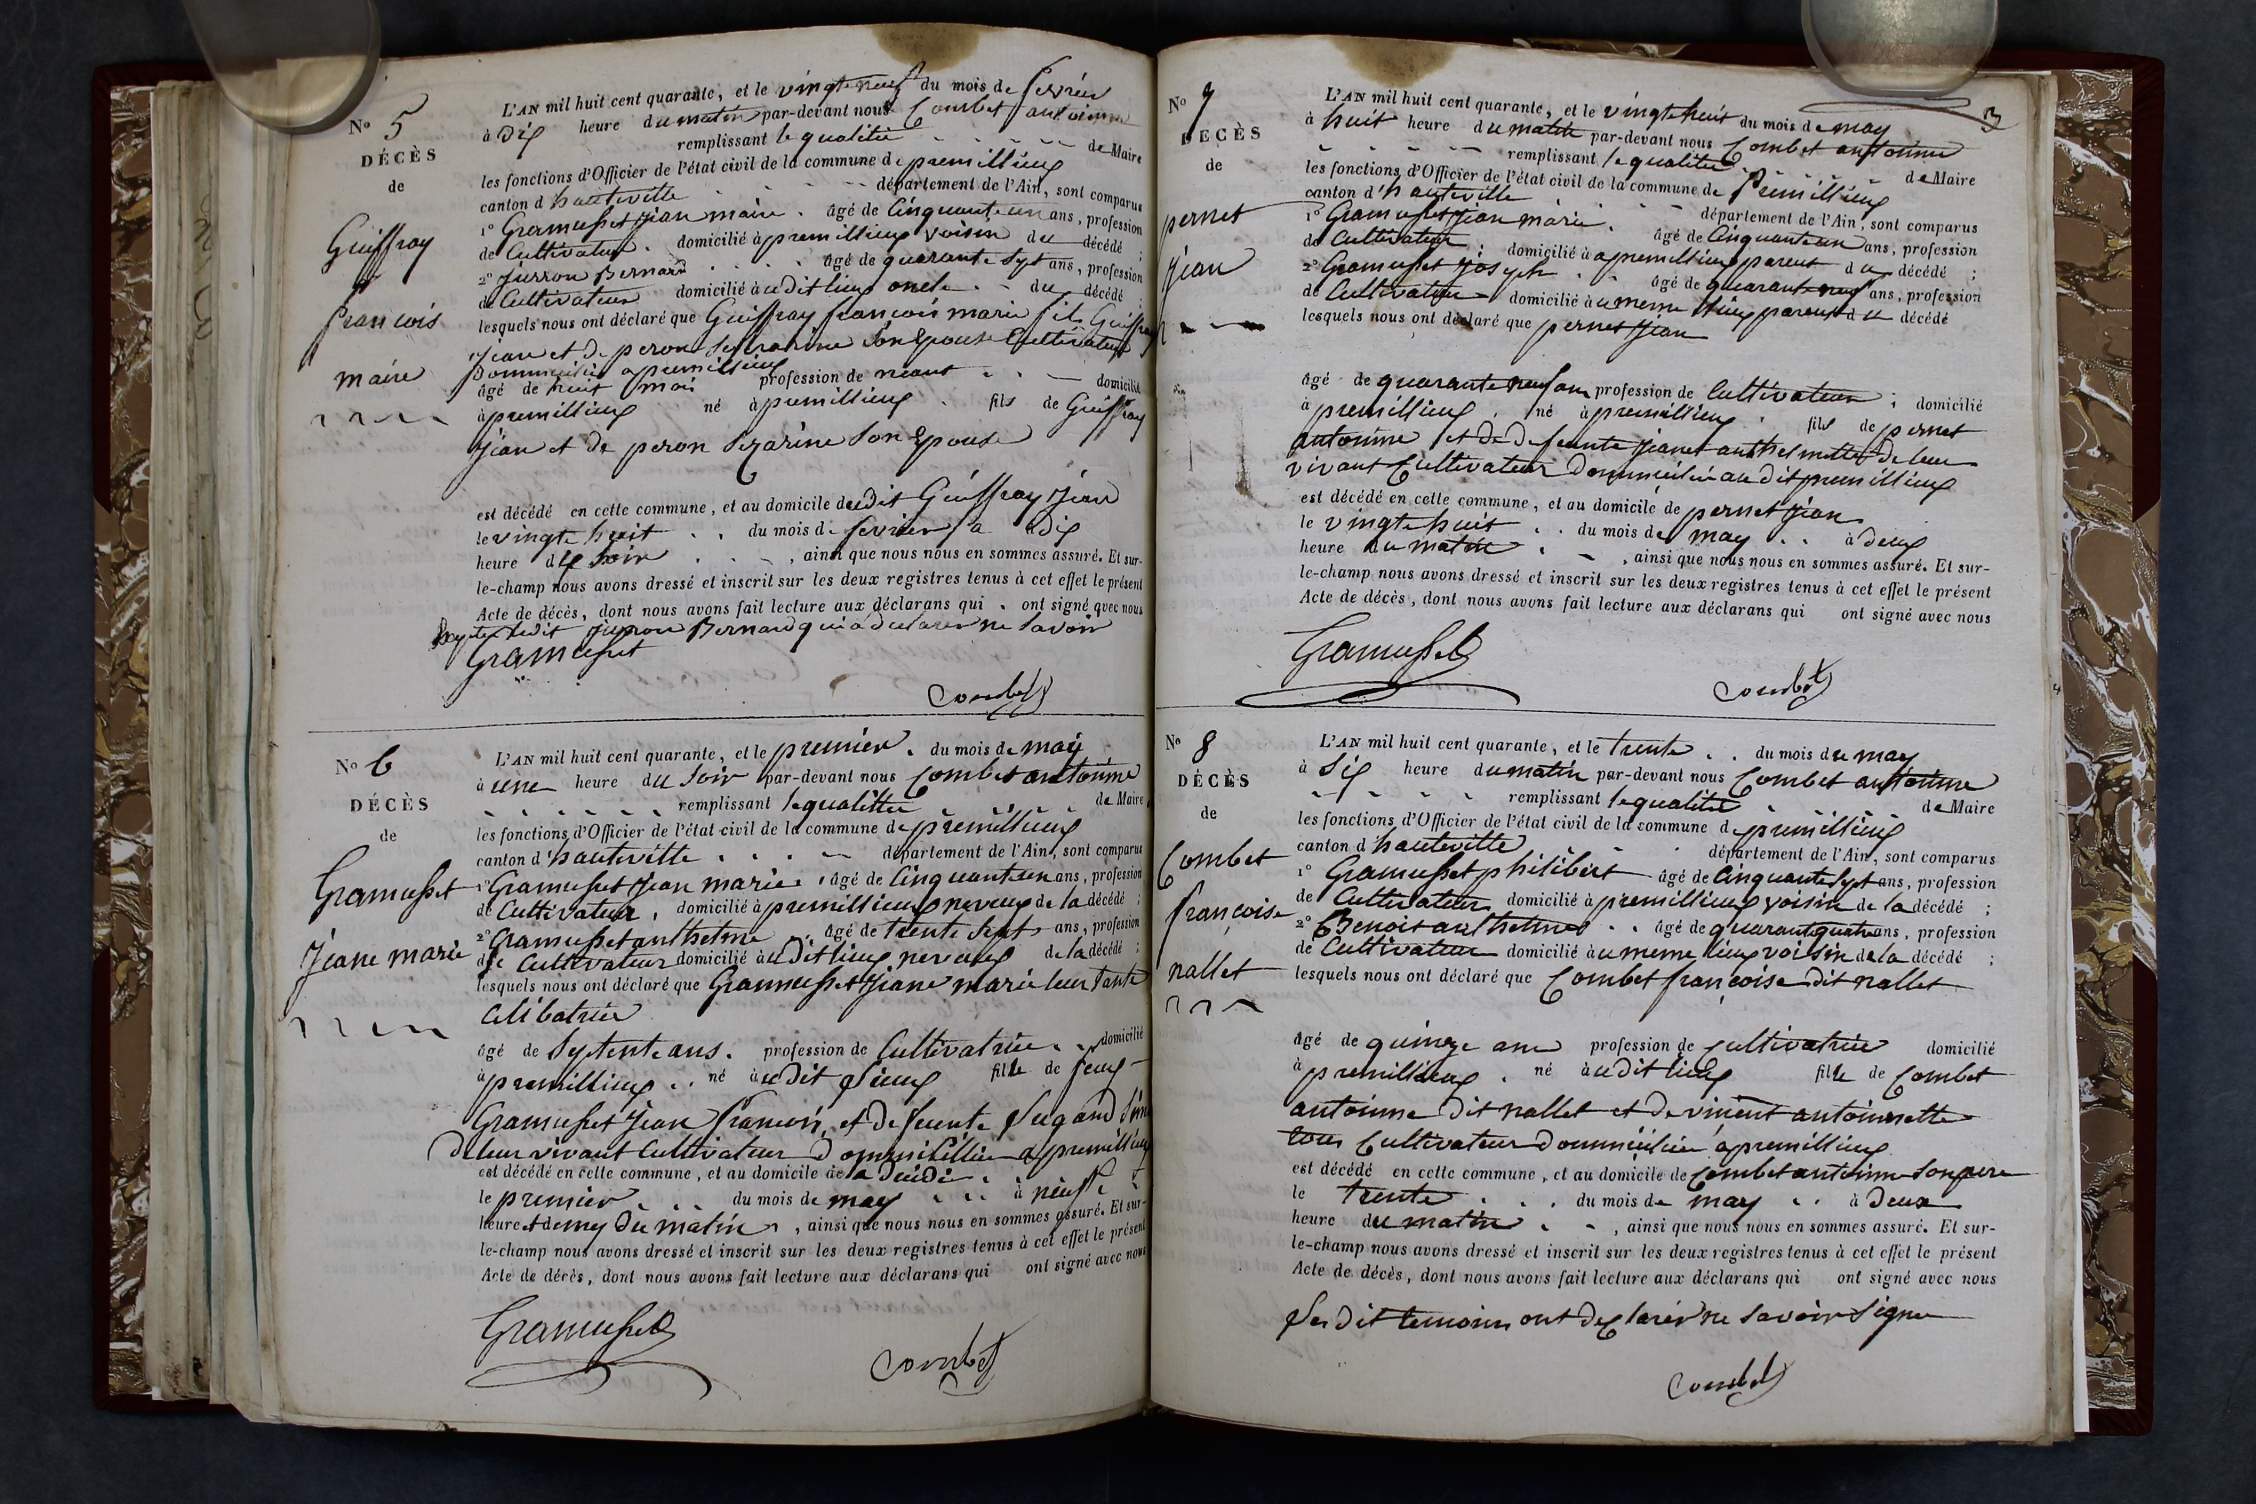 No 5
DÉCÈS
de
Guiffray
francois
marie
L'AN mil huit cent quarante, et le vingt neuf du mois de fevrier
à dix heure du matin par-devant nous Combet antoinne
remplissant le qualitée de Maire
les fonctions d'Officier de l'état civil de la commune de premillieux
canton d'hauteville département de l'Ain, sont comparus
1° Gramusset jean marie âgé de Cinquante un ans, profession
de Cultivateur domicilié à premillieux voisin du décédé ;
2° Jurron Bernard âgé de quarante sept ans, profession
de Cultivateur domicilié à udit lieux oncle du décédé ;
lesquels nous ont déclaré que Guiffray francois marie fils Guiffray
jean et de peron son Epouse Cultivateur
apremillieux
âgé de huit moi profession de neant domicilié
à premillieux né à premillieux fils de Guiffray
jean et de peron son Epouse
est décédé en cette commune, et au domicile dudit Guiffray jean
le vingte huit du mois de fevrier à dix
heure du soir , ainsi que nous nous en sommes assuré. Et sur-
le-champ nous avons dressé et inscrit sur les deux registres tenus à cet effet le présent
Acte de décès, dont nous avons fait lecture aux déclarans qui ont signé avec nous
ledit jurron Bernard qui a declarer ne savoir
Gramusset
Combet
No 6
DÉCÈS
de
Gramusset
jeane marie
L'AN mil huit cent quarante, et le premier du mois de may
à une heure du soir par-devant nous Combet antoinne
remplissant le qualittée de Maire
les fonctions d'Officier de l'état civil de la commune de premillieux
canton d'hauteville département de l'Ain, sont comparus
1° Gramusset jean marie âgé de Cinquante un ans, profession
de Cultivateur, domicilié à premillieux neveux de la décédé ;
2° Gramusset anthelme âgé de trente sept ans, profession
de Cultivateur domicilié à udit lieux neveux de la décédé ;
lesquels nous ont déclaré que Gramusset jeane marie leur tante
Celibatrice
âgé de septente ans. profession de Cultivatrice domicilié
à premillieux né à udit lieux fille de feux
Gramusset jean francois, et defeunte
de leur vivant Cultivateur domicillier a premillieux
est décédé en cette commune, et au domicile de la decidé
le premier du mois de may à neuf
heure et demy du matin , ainsi que nous nous en sommes assuré. Et sur-
le-champ nous avons dressé et inscrit sur les deux registres tenus à cet effet le présent
Acte de décès, dont nous avons fait lecture aux déclarans qui ont signé avec nous
Gramusset
Combet
3
No 7
DÉCÈS
de
pernet
jean
L'AN mil huit cent quarante, et le vingte huit du mois de may
à huit heure du matin par-devant nous Combet antoinne
remplissant le qualitée de Maire
les fonctions d'Officier de l'état civil de la commune de Premillieux
canton d'hauteville département de l'Ain, sont comparus
1° Gramusset jean marie âgé de Cinquante un ans, profession
de Cultivateur ; domicilié à apremillieux parent du décédé ;
2° Gramusset joseph âgé de quarante neuf ans, profession
de Cultivateur domicilié à u meme lieux parent du décédé
lesquels nous ont déclaré que pernet jean
âgé de quarante neuf ans profession de Cultivateur ; domicilié
à premillieux né à premillieux fils de pernet
antoinne et de defeunte jeanet anthelmette de leur
vivant Cultivateur dommicilié au dit premillieux
est décédé en cette commune, et au domicile de pernet jean
le vingte huit du mois de may à deux
heure du matin , ainsi que nous nous en sommes assuré. Et sur-
le-champ nous avons dressé et inscrit sur les deux registres tenus à cet effet le présent
Acte de décès, dont nous avons fait lecture aux déclarans qui ont signé avec nous
Gramusset
Combet
No 8
DÉCÈS
de
Combet
françoise
nallet
L'AN mil huit cent quarante, et le trente du mois de may
à six heure du matin par-devant nous Combet antoinne
remplissant le qualitée de Maire
les fonctions d'Officier de l'état civil de la commune de premillieux
canton d'hauteville département de l'Ain, sont comparus
1° Gramusset philibert âgé de Cinquante sept ans, profession
de Cultivateur domicilié à premillieux voisin de la décédé ;
2° Benoit anthelme âgé de quarante quatre ans, profession
de Cultivateur domicilié à u meme lieux voisin de la décédé ;
lesquels nous ont déclaré que Combet françoise dit nallet
âgé de quinze ans profession de Cultivatrice domicilié
à premillieux né à udit lieux fille de Combet
antoinne dit nallet et de vincent antoinnette
tous Cultivateur dommicilier apremillieux
est décédé en cette commune, et au domicile de Combet antoinne son pere
le trente du mois de may à deux
heure du matin , ainsi que nous nous en sommes assuré. Et sur-
le-champ nous avons dressé et inscrit sur les deux registres tenus à cet effet le présent
Acte de décès, dont nous avons fait lecture aux déclarans qui ont signé avec nous
les dit temoins ont declarer ne savoir signer
Combet